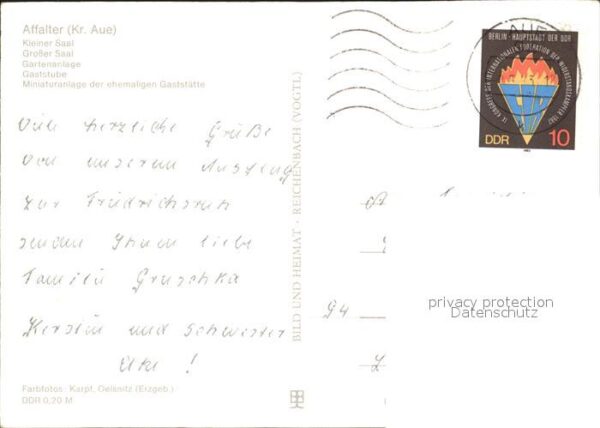 Affalter (Kr. Aue)
Kleiner Saal
Großer Saal
Gartenanlage
Gaststube
Miniaturanlage der ehemaligen Gaststätte
Viele herzliche Grüße
von unserem Ausflug
zur Friedrichsruh
senden Ihnen liebe
Familie Gruschka
Kerstin und Schwester
Ute !
Farbfotos: Karpf, Gelenau (Erzgeb.)
DDR 0,20 M
BILD UND HEIMAT · REICHENBACH (VOGTL)
BERLIN - HAUPTSTADT DER DDR
IX. KONGRESS DER INTERNATIONALEN FÖDERATION DER WIDERSTANDSKÄMPFER 1982
DDR 10
94
privacy protection
Datenschutz